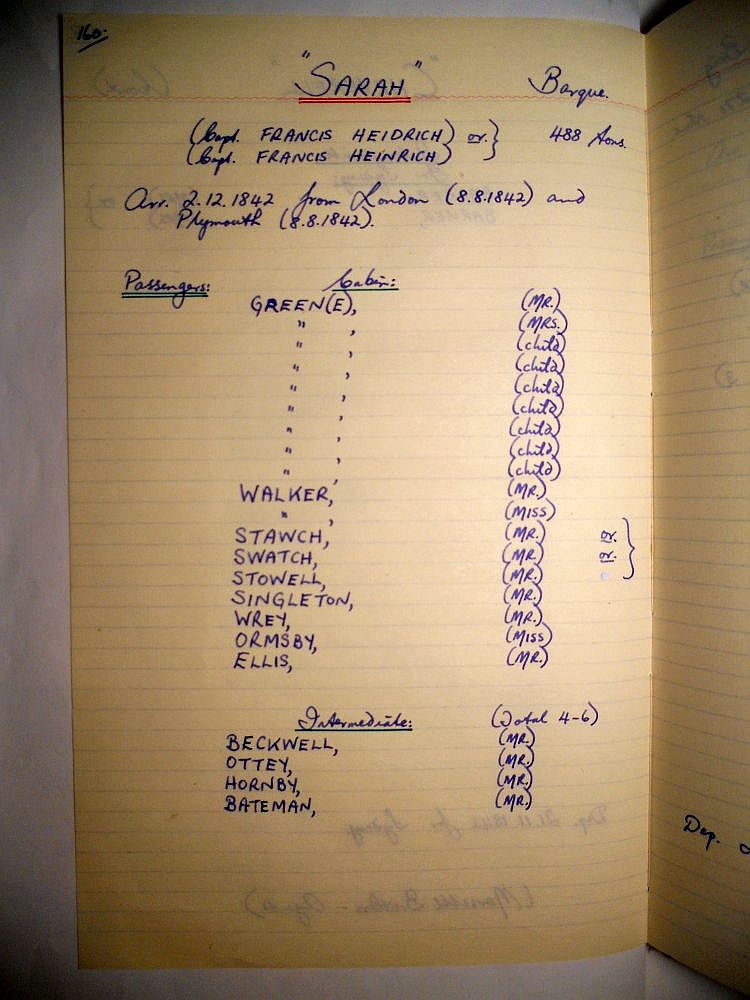 160.
"SARAH" Barque.
(Capt. FRANCIS HEIDRICH) or. } 488 tons.
(Capt. FRANCIS HEINRICH)
Arr. 2.12.1842 from London (8.8.1842) and
Plymouth (8.8.1842).
Passengers: Cabin:
GREEN(E), (MR.)
" , (MRS.)
" , (child)
" , (child)
" , (child)
" , (child)
" , (child)
" , (child)
" , (child)
WALKER, (MR.)
" , (MISS)
STAWCH, (MR.) or. }
SWATCH, (MR.) or.
STOWELL, (MR.)
SINGLETON, (MR.)
WREY, (MR.)
ORMSBY, (MISS)
ELLIS, (MR.)
Intermediate: (Total 4-6)
BECKWELL, (MR.)
OTTEY, (MR.)
HORNBY, (MR.)
BATEMAN, (MR.)
Dep.